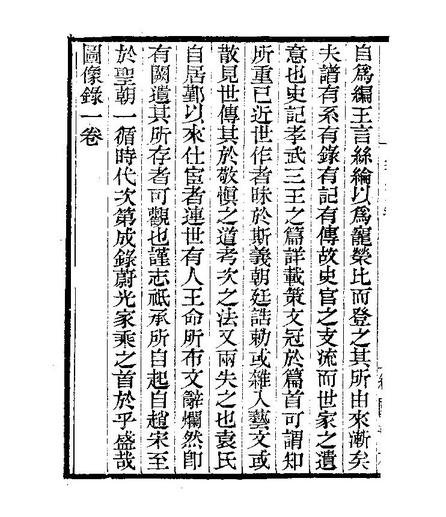 自爲編王言絲綸以爲寵榮比而登之其所由來漸矣
夫譜有系有錄有記有傳故史官之支流而世家之遺
意也史記孝武三王之篇詳載策文冠於篇首可謂知
所重已近世作者昧於斯義朝廷誥勅或雜入藝文或
散見世傳其於敬愼之道考次之法又兩失之也袁氏
自居鄞以來仕宦者連世有人王命所布文辭爛然卽
有闕遺其所存者可觀也謹志祇承所自起自趙宋至
於聖朝一循時代次第成錄蔚光家乘之首於乎盛哉
圖像錄一卷